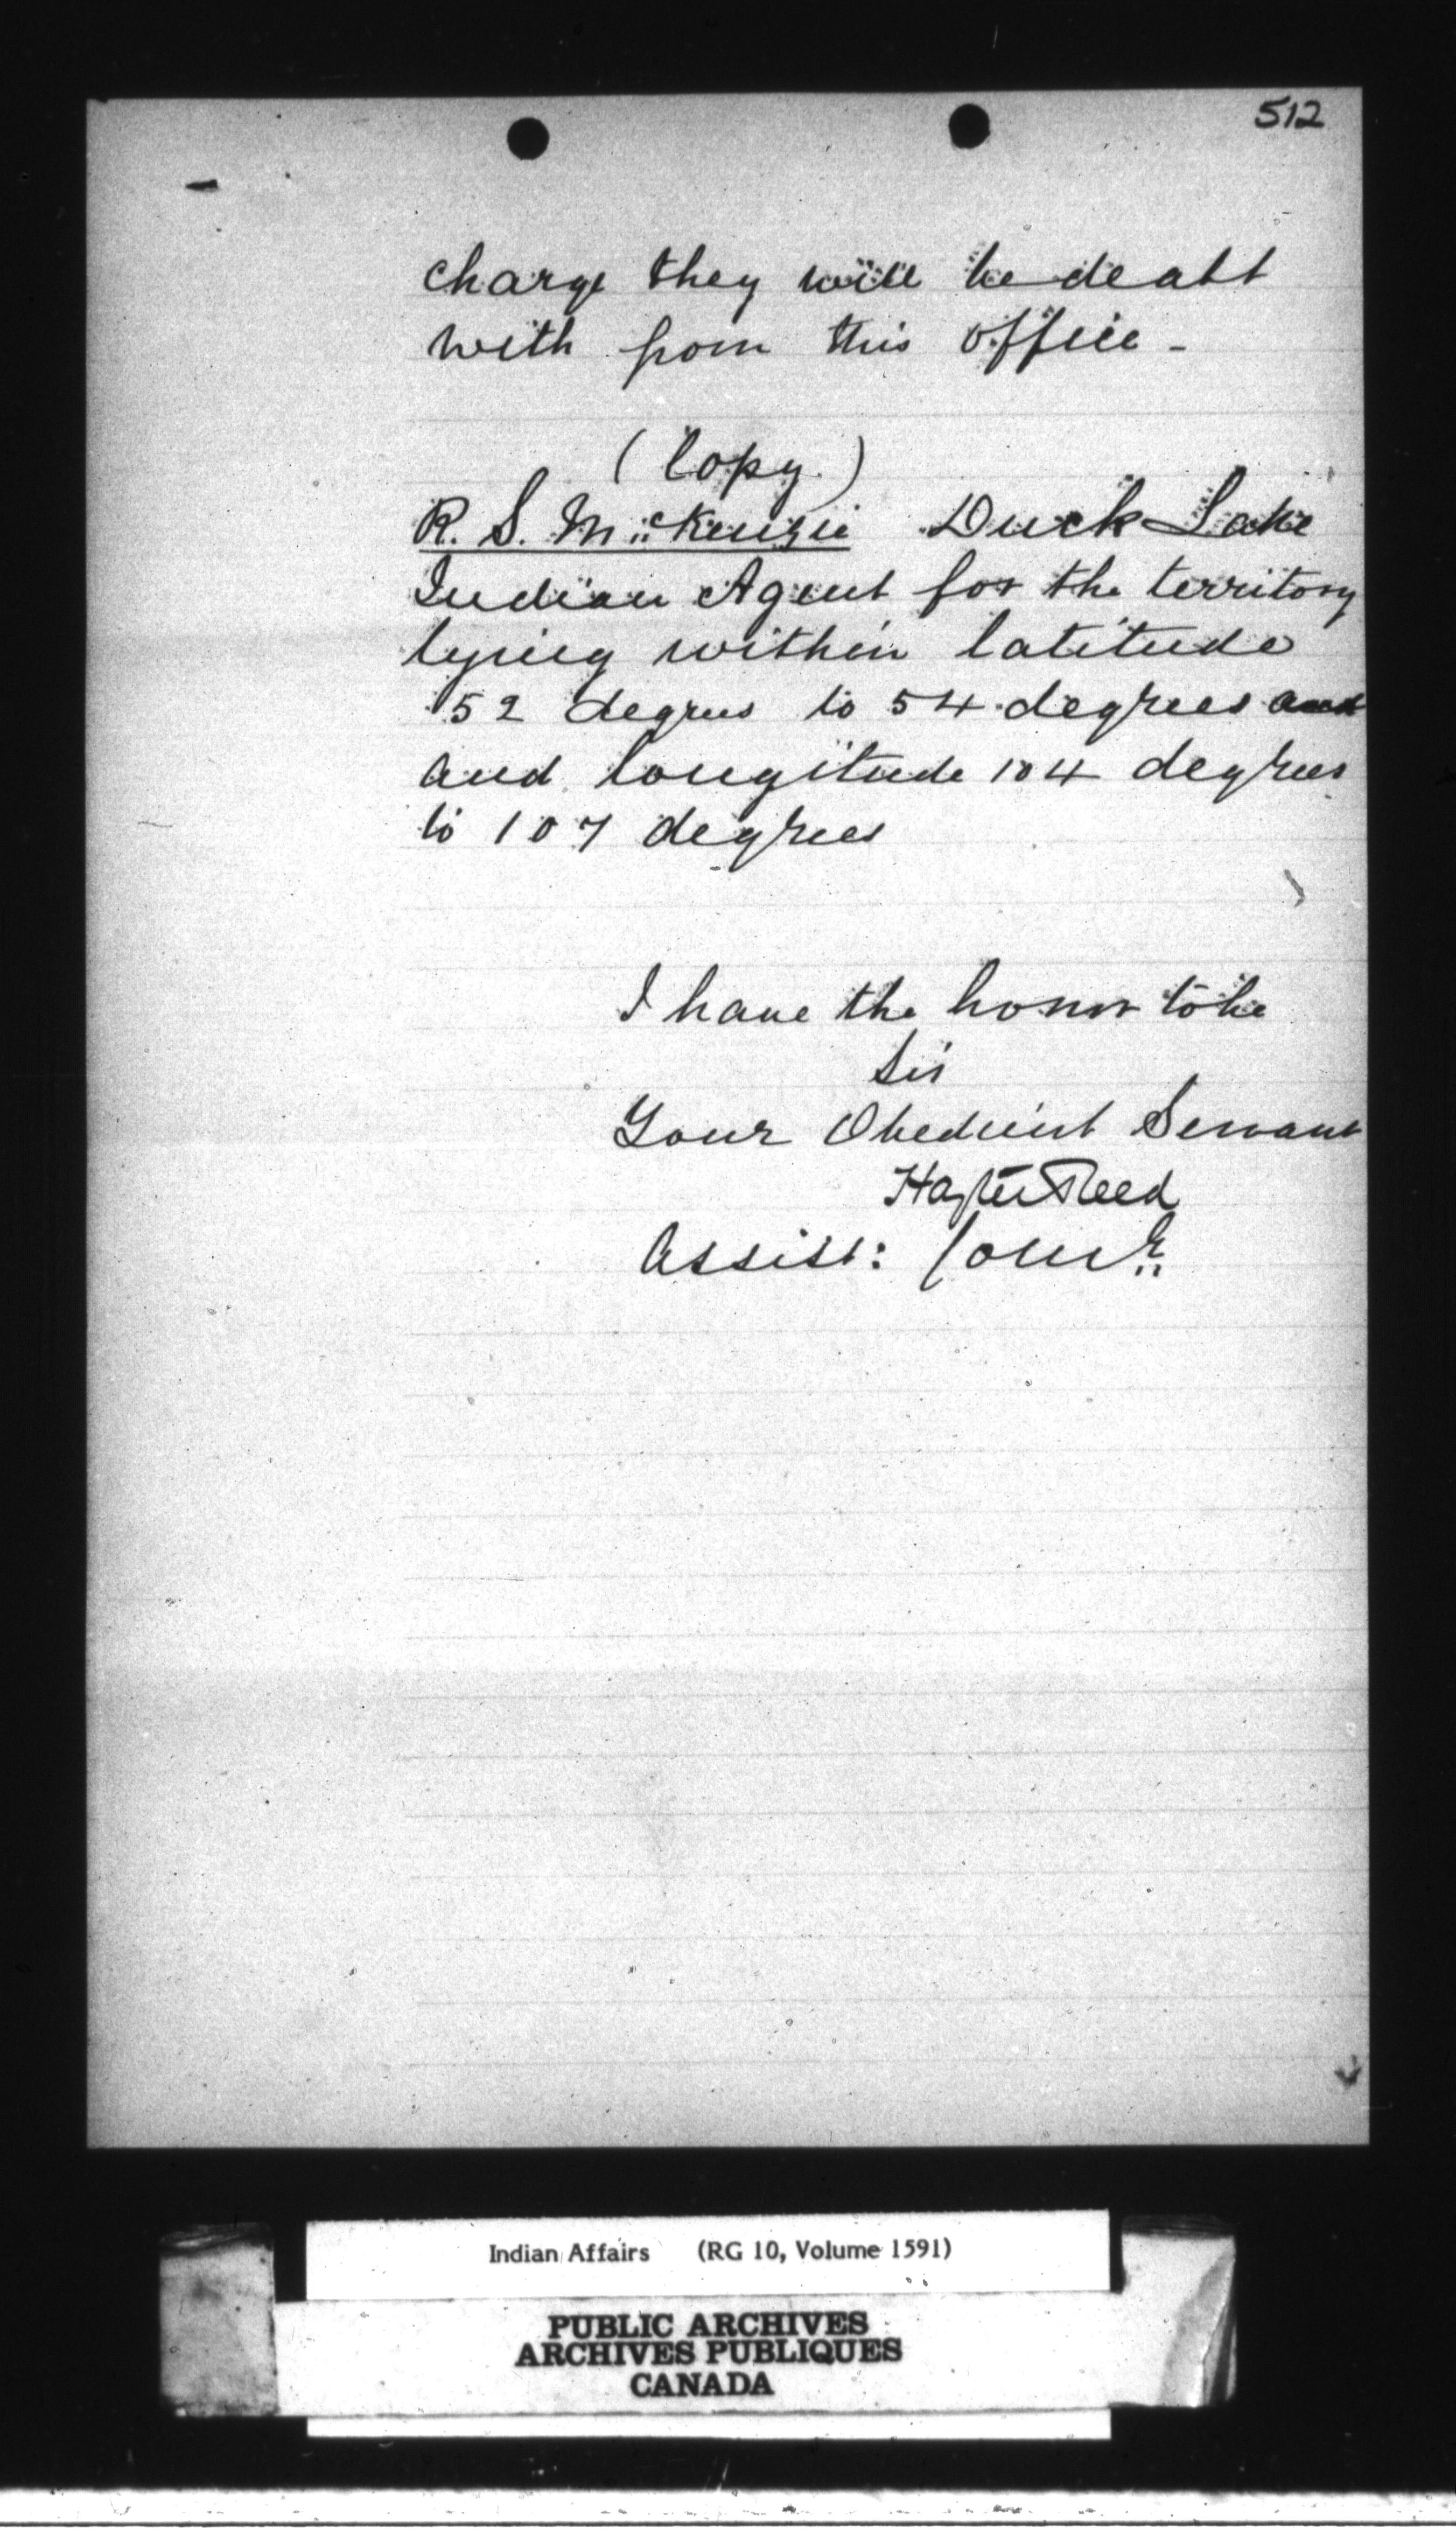 512
charge they will be dealt
with from this office -
(Copy.)
R. S. McKenzie Duck Lake
Indian Agent for the territory
lying within latitude
52 degrees to 54 degrees and
and longitude 104 degrees
to 107 degrees
I have the honor to be
Sir
Your Obedient Servant
Hayter Reed
Assist: Comr
Indian Affairs (RG 10, Volume 1591)
PUBLIC ARCHIVES
ARCHIVES PUBLIQUES
CANADA